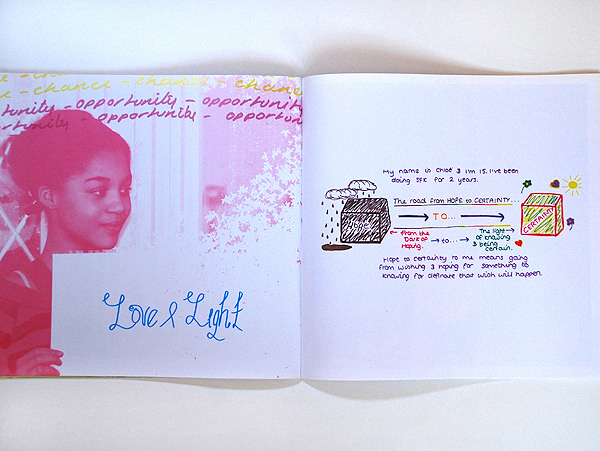 - chance - chance - chance
tunity - opportunity - opportunity
ortunity - opportunity - opportun
Love & Light
My name is Chloé & I'm 15. I've been
doing SFK for 2 years.
The road from HOPE to CERTAINTY...
TO...
CERTAINTY
from the Dark of Hoping.
to...
The light of knowing & being certain.
Hope to certainty to me means going
from wishing & hoping for something to
knowing for definate that wish will happen.